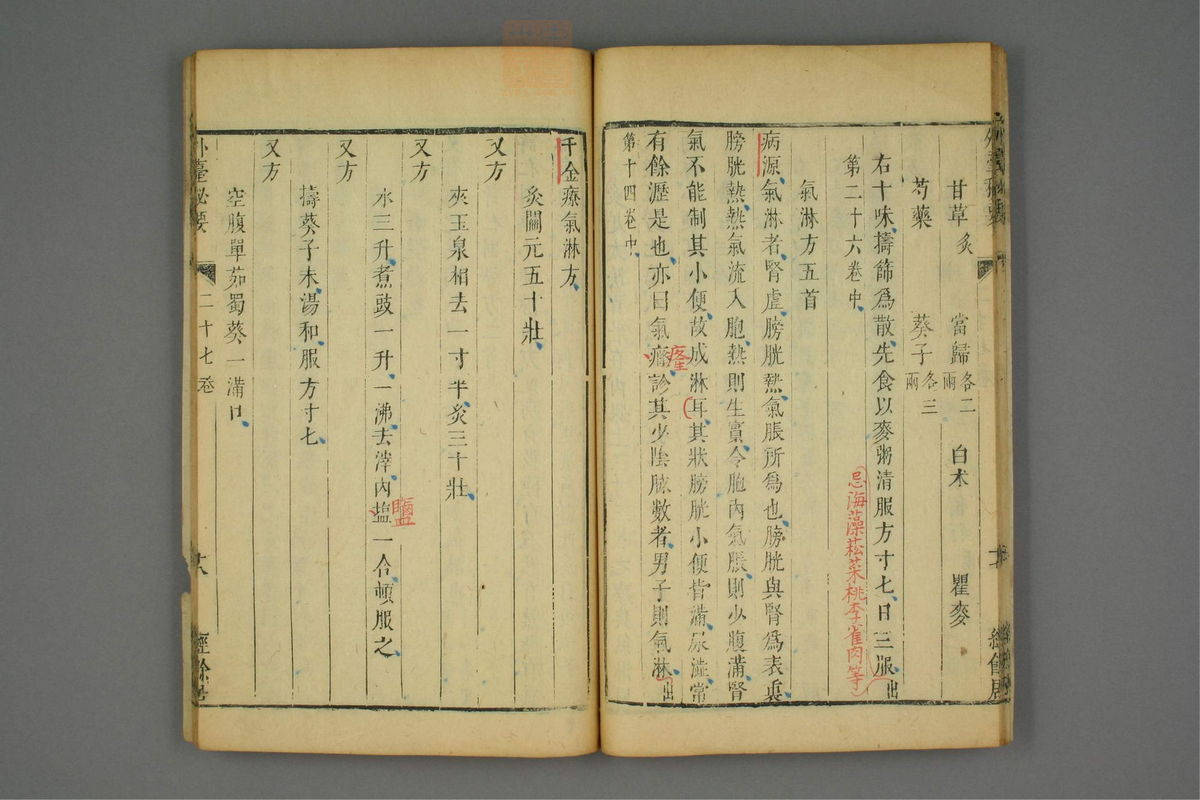 甘草炙 當歸各二兩 白朮 瞿麥
芍藥 葵子各三兩
右十味擣篩爲散先食以麥粥清服方寸七日三服出
忌海藻菘菜桃李雀肉等
第二十六卷中
氣淋方五首
病源氣淋者腎虛膀胱熱氣脹所爲也膀胱與腎爲表裏
膀胱熱熱氣流入胞熱則生實令胞內氣脹則少腹滿腎
氣不能制其小便故成淋耳其狀膀胱小便皆滿尿澁常
有餘瀝是也亦曰氣癃診其少陰脉數者男子則氣淋出
㾗
第十四卷中
千金療氣淋方
灸關元五十壯
又方
夾玉泉相去一寸半灸三十壯
又方
水三升煮豉一升一沸去滓內塩一合頓服之
鹽
又方
擣葵子末湯和服方寸七
又方
空腹單茹蜀葵一滿口
外臺祕要 二十七卷 十八 經餘居